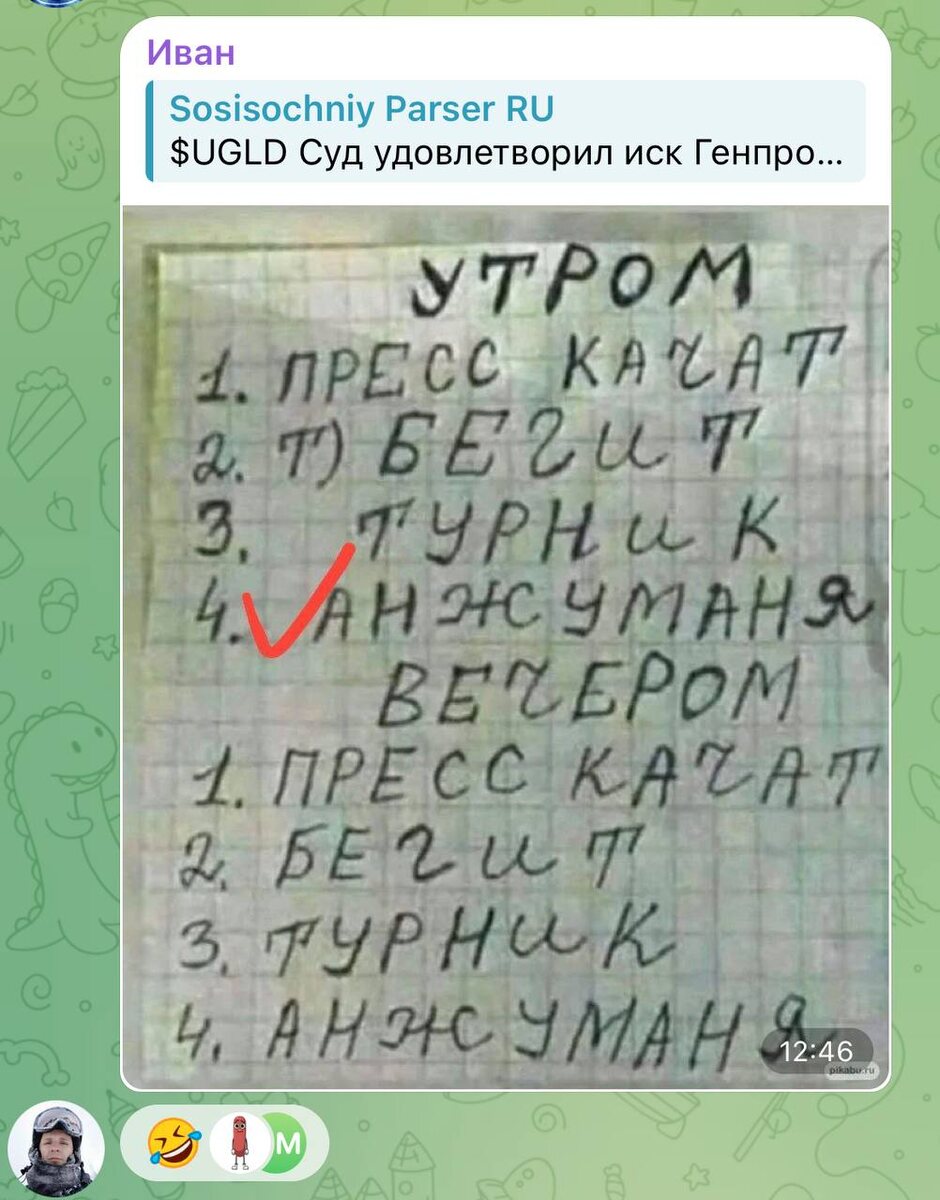 Иван
Sosisochniy Parser RU
$UGLD Суд удовлетворил иск Генпро...
УТРОМ
1. ПРЕСС КАЧАТ
2. Т) БЕГИТ
3. ТУРНИК
4. АНЖУМАНЯ
ВЕЧЕРОМ
1. ПРЕСС КАЧАТ
2. БЕГИТ
3. ТУРНИК
4. АНЖУМАНЯ
12:46
pikabu.ru
M